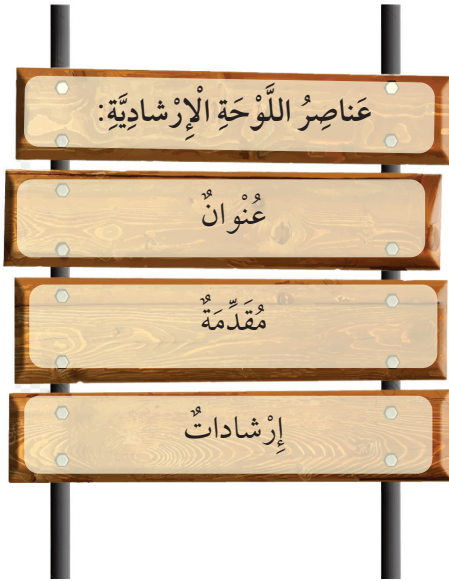 عَناصِرُ اللَّوْحَةِ الْإِرْشادِيَّةِ:
عُنْوانٌ
مُقَدِّمَةٌ
إِرْشاداتٌ